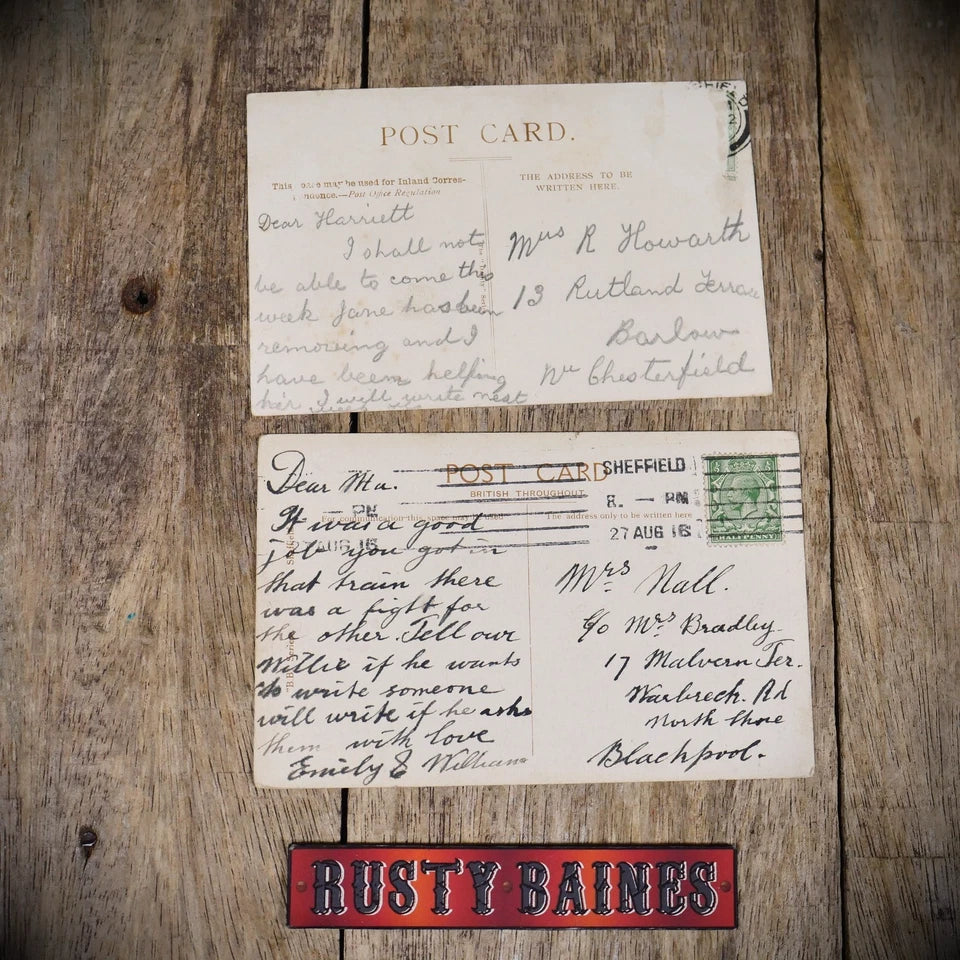 POST CARD.
This space may be used for Inland Corres-
pondence.—Post Office Regulation
THE ADDRESS TO BE
WRITTEN HERE.
Dear Harriett
I shall not
be able to come this
week Jane has been
removing and I
have been helping
her I will write next
Mrs R Howarth
13 Rutland Terrace
Barlow
Nr Chesterfield
POST CARD
BRITISH THROUGHOUT
For communication this space may be used
The address only to be written here
SHEFFIELD
8. — PM
27 AUG 16
HALFPENNY
PM
27 AUG 16
Dear Ma.
It was a good
job you got in
that train there
was a fight for
the other. Tell our
Willie if he wants
to write someone
will write if he asks
them with love
Emily & William
Mrs Nall.
c/o Mrs Bradley
17 Malvern Ter.
Warbreck. Rd
North Shore
Blackpool.
RUSTY BAINES